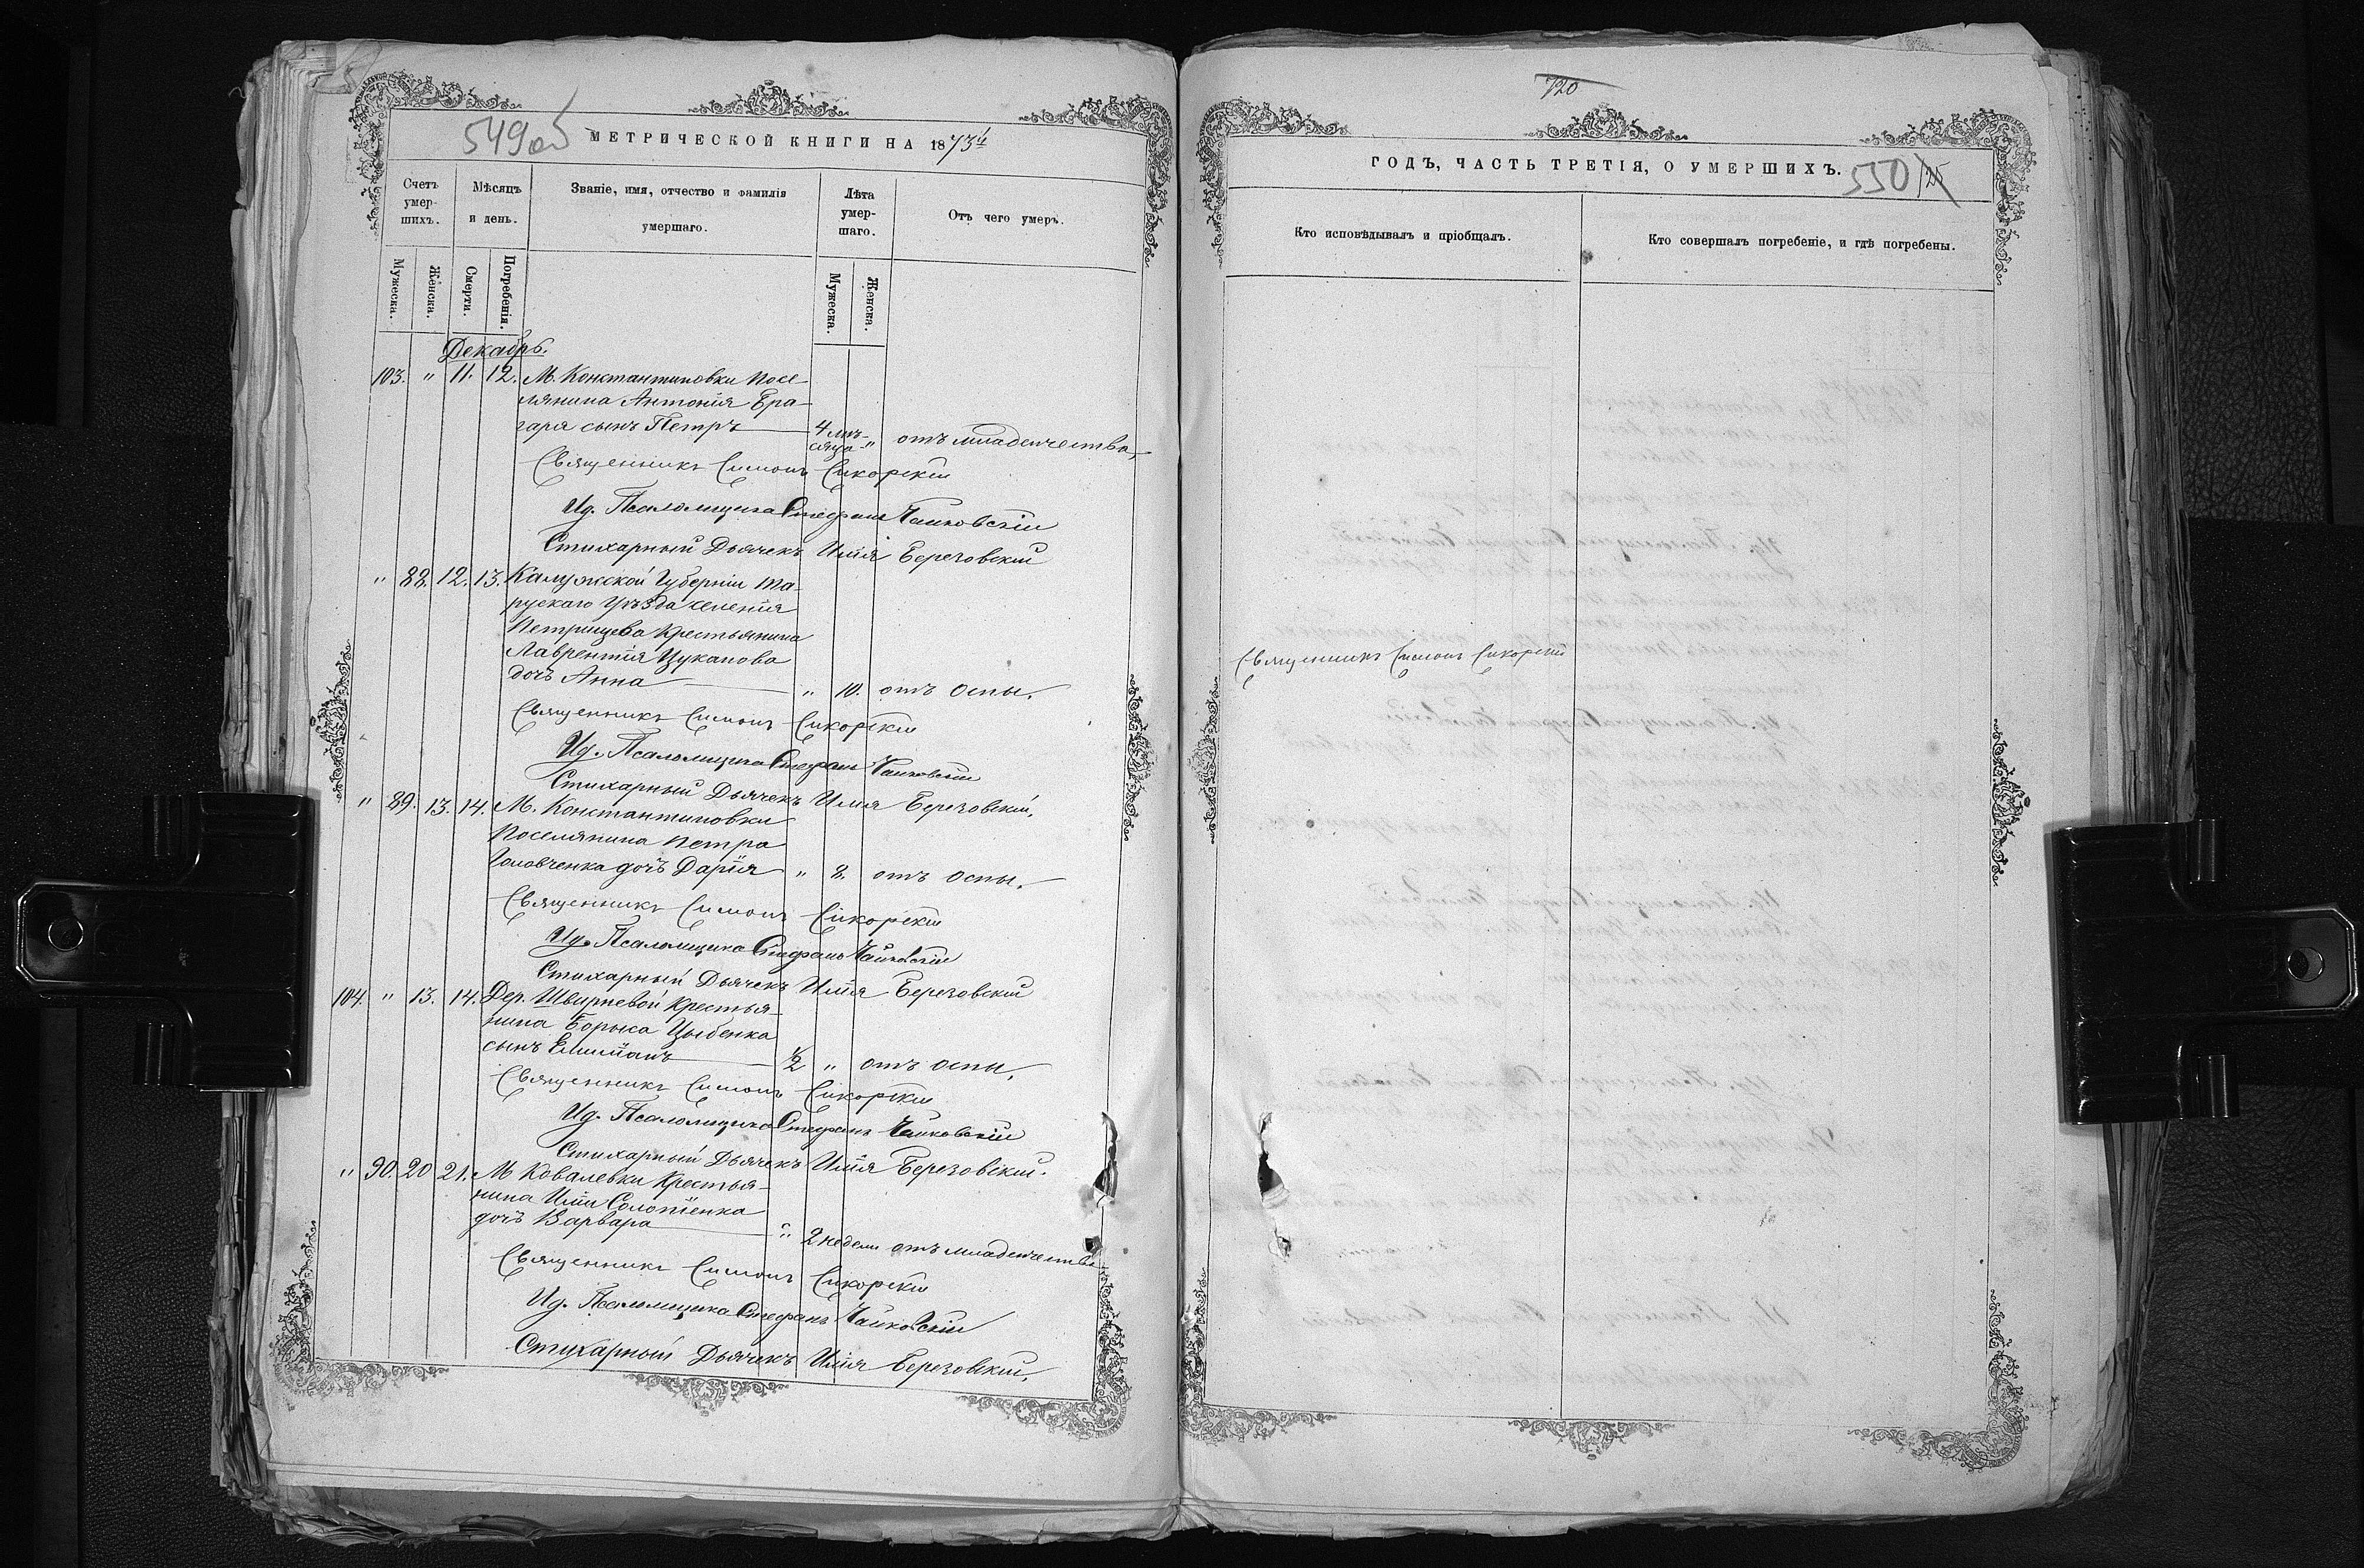 549 об
МЕТРИЧЕСКОЙ КНИГИ НА 1873й
Счетъ умер-шихъ.
Мѣсяцъ и день.
Званіе, имя, отчество и фамилія умершаго.
Лѣта умер-шаго.
Отъ чего умеръ.
Мужеска.
Женска.
Смерти.
Погребенія.
Мужеска.
Женска.
Декабрь.
103. " 11. 12. М. Константиновки посе-
лянина Антонія Бра-
гаря сынъ Петръ 4 мѣ-сяца " отъ младенчества,
Священникъ Симонъ Сикорскій
Ид. Псаломщика Стефанъ Чайковскій
Стихарный Дьячекъ Илія Березовскій
" 88. 12. 13. Калужской Губерніи Та-
рускаго Уѣзда селенія
Петрищева Крестьянина
Лаврентія Цуканова
дочь Анна " 10. отъ оспы.
Священникъ Симонъ Сикорскій
Ид. Псаломщика Стефанъ Чайковскій
Стихарный Дьячекъ Илія Березовскій.
" 89. 13. 14. М. Константиновки
Поселянина Петра
Головченка дочь Дарія " 8. отъ оспы.
Священникъ Симонъ Сикорскій
Ид. Псаломщика Стефанъ Чайковскій
Стихарный Дьячекъ Илія Березовскій
104. " 13. 14. Дер. Швырневой Крестья-
нина Бориса Цыбенка
сынъ 1/2 " отъ оспы.
Священникъ Симонъ Сикорскій
Ид. Псаломщика Стефанъ Чайковскій
Стихарный Дьячекъ Илія Березовскій.
" 90. 20 21. М. Ковалевки Крестья-
нина Иліи Солопіенка
дочь Варвара " 2 недели отъ младенчества
Священникъ Симонъ Сикорскій
Ид. Псаломщика Стефанъ Чайковскій
Стихарный Дьячекъ Илія Березовскій.
720
ГОДЪ, ЧАСТЬ ТРЕТІЯ, О УМЕРШИХЪ.
550
Кто исповѣдывалъ и пріобщалъ.
Кто совершалъ погребеніе, и гдѣ погребены.
Священникъ Симонъ Сикорскій